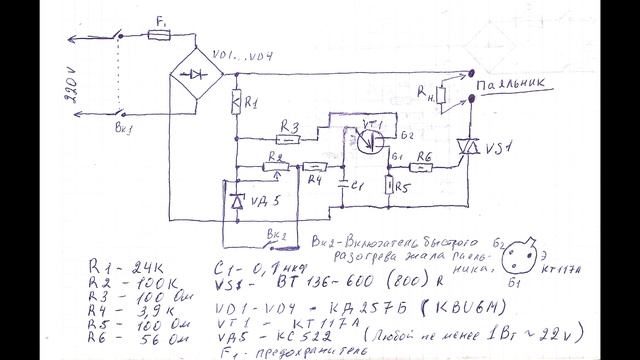 F1
VD1...VD4
220v
Вк1
R1
R3
VT1
Б2
Б1
R2
R4
C1
R5
R6
Rн
Паяльник
VS1
VД5
Вк2
Вк2-Включатель быстрого
разогрева жала паяль-
ника.
Б2
Э
Б1
КТ117А
R1 - 24К
R2 - 100К
R3 - 100 Ом
R4 - 3,9К
R5 - 100 Ом
R6 - 56 Ом
C1 - 0,1 мкф
VS1 - BT 136-600 (800) R
VD1-VD4 - КД257Б (KBU6M)
VT1 - КТ117А
VД5 - КС522 (Любой не менее 1Вт ~22v)
F1 - предохранитель